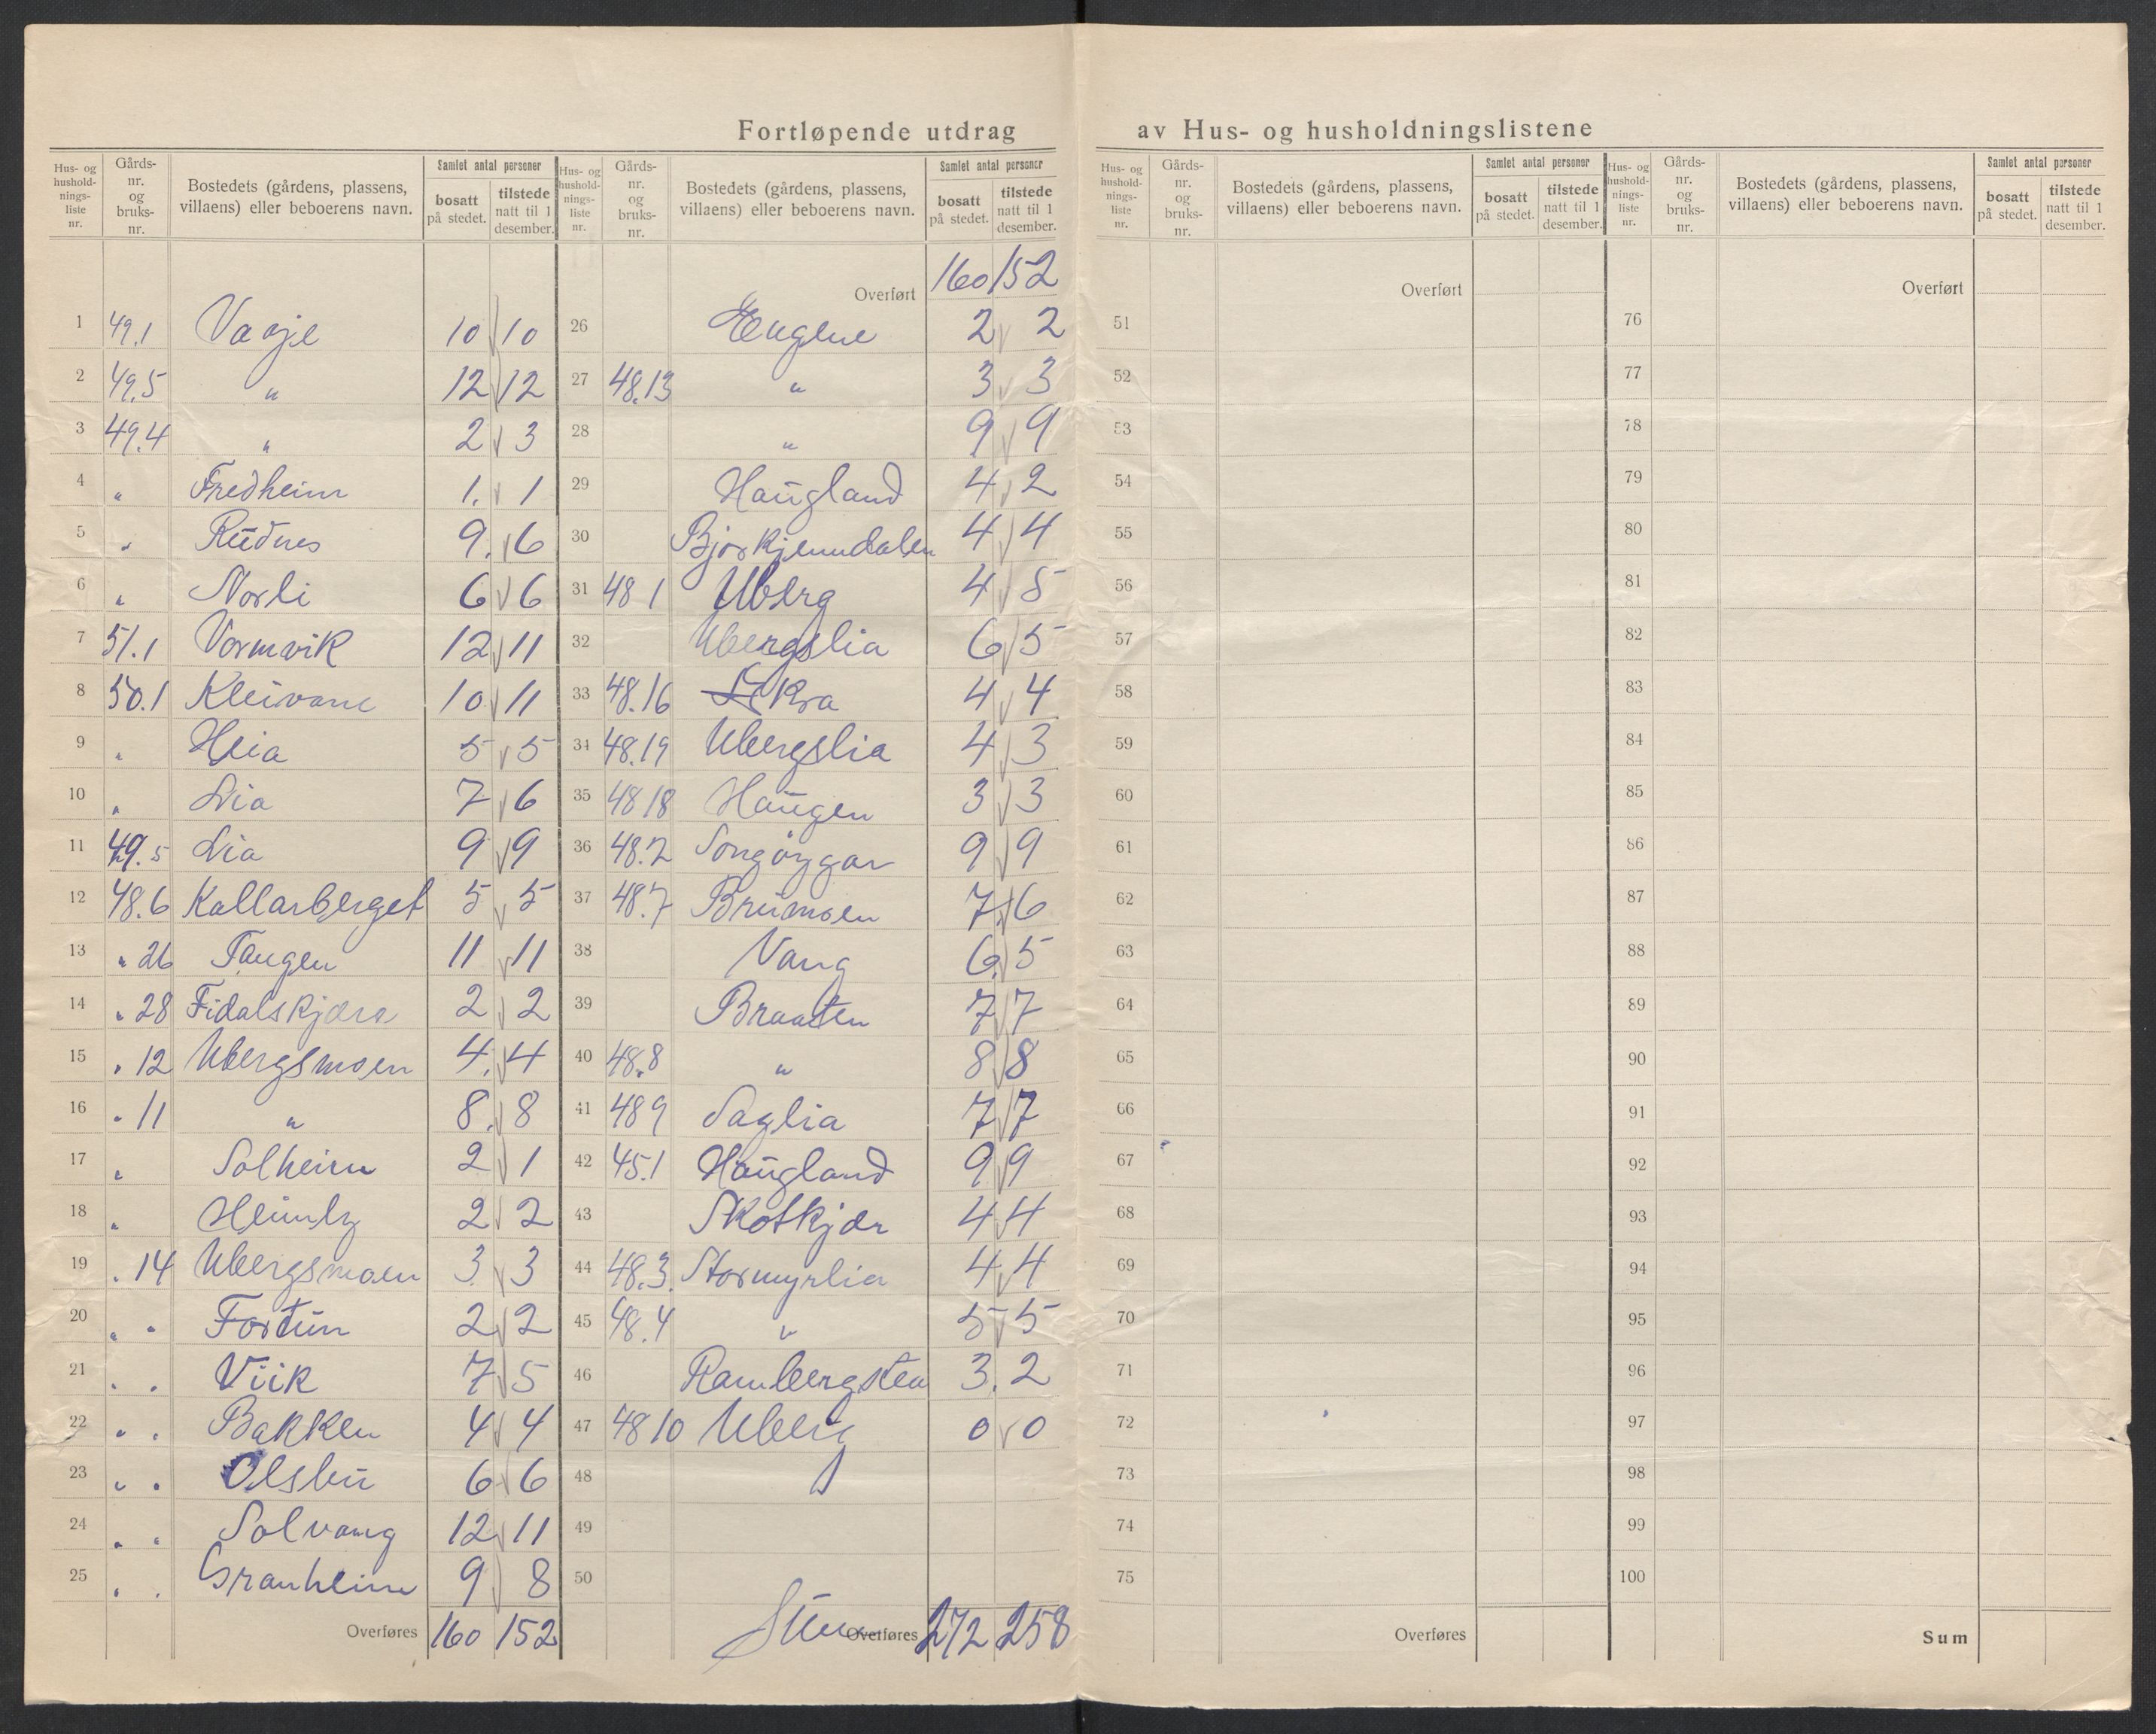 Fortløpende utdrag av Hus- og husholdningslistene
Hus- og hushold-nings-liste nr. Gårds-nr. og bruks-nr. Bostedets (gårdens, plassens, villaens) eller beboerens navn. Samlet antal personer bosatt på stedet. tilstede natt til 1 desember.
1 49.1 Vaaje 10 10
2 49.5 " 12 12
3 49.4 " 2 3
4 " Fredheim 1. 1
5 " Rudnes 9. 6
6 " Norli 6 6
7 51.1 Vormvik 12 11
8 50.1 Kleivane 10 11
9 " Heia 5 5
10 " Lia 7 6
11 49.5 Lia 9 9
12 48.6 Kallarberget 5 5
13 " 26 Tangen 11 11
14 " 28 Fidalskjæra 2 2
15 " 12 Ubergsmoen 4. 4
16 " 11 " 8. 8
17 " Solheim 2 1
18 " Heimly 2 2
19 " 14 Ubergsmoen 3 3
20 " " Fortun 2 2
21 " " Viik 7 5
22 " " Bakken 4 4
23 " " Olsbu 6 6
24 " " Solvang 12 11
25 " " Granheim 9 8
Overføres 160 152
Hus- og hushold-nings-liste nr. Gårds-nr. og bruks-nr. Bostedets (gårdens, plassens, villaens) eller beboerens navn. Samlet antal personer bosatt på stedet. tilstede natt til 1 desember.
Overført 160 152
26 Englene 2 2
27 48.13 " 3 3
28 " 9 9
29 Haugland 4 2
30 Bjorkjenndalen 4 4
31 48 1 Uberg 4 5
32 Ubergslia 6 5
33 48.16 Ekra 4 4
34 48.19 Ubergslia 4 3
35 48 18 Haugen 3 3
36 48.2 Songøygar 9 9
37 48.7 Brumoen 7 6
38 Vang 6 5
39 Braaten 7 7
40 48.8 " 8 8
41 48 9 Saglia 7 7
42 45.1 Haugland 9 9
43 Skotkjær 4 4
44 48.3. Stormyrlia 4 4
45 48.4 " 5 5
46 Rambergsten 3. 2
47 48 10 Uberg 0 0
48
49
50
Sum Overføres 272 258
Hus- og hushold-nings-liste nr. Gårds-nr. og bruks-nr. Bostedets (gårdens, plassens, villaens) eller beboerens navn. Samlet antal personer bosatt på stedet. tilstede natt til 1 desember.
Overført
51
52
53
54
55
56
57
58
59
60
61
62
63
64
65
66
67
68
69
70
71
72
73
74
75
Overføres
Hus- og hushold-nings-liste nr. Gårds-nr. og bruks-nr. Bostedets (gårdens, plassens, villaens) eller beboerens navn. Samlet antal personer bosatt på stedet. tilstede natt til 1 desember.
Overført
76
77
78
79
80
81
82
83
84
85
86
87
88
89
90
91
92
93
94
95
96
97
98
99
100
Sum